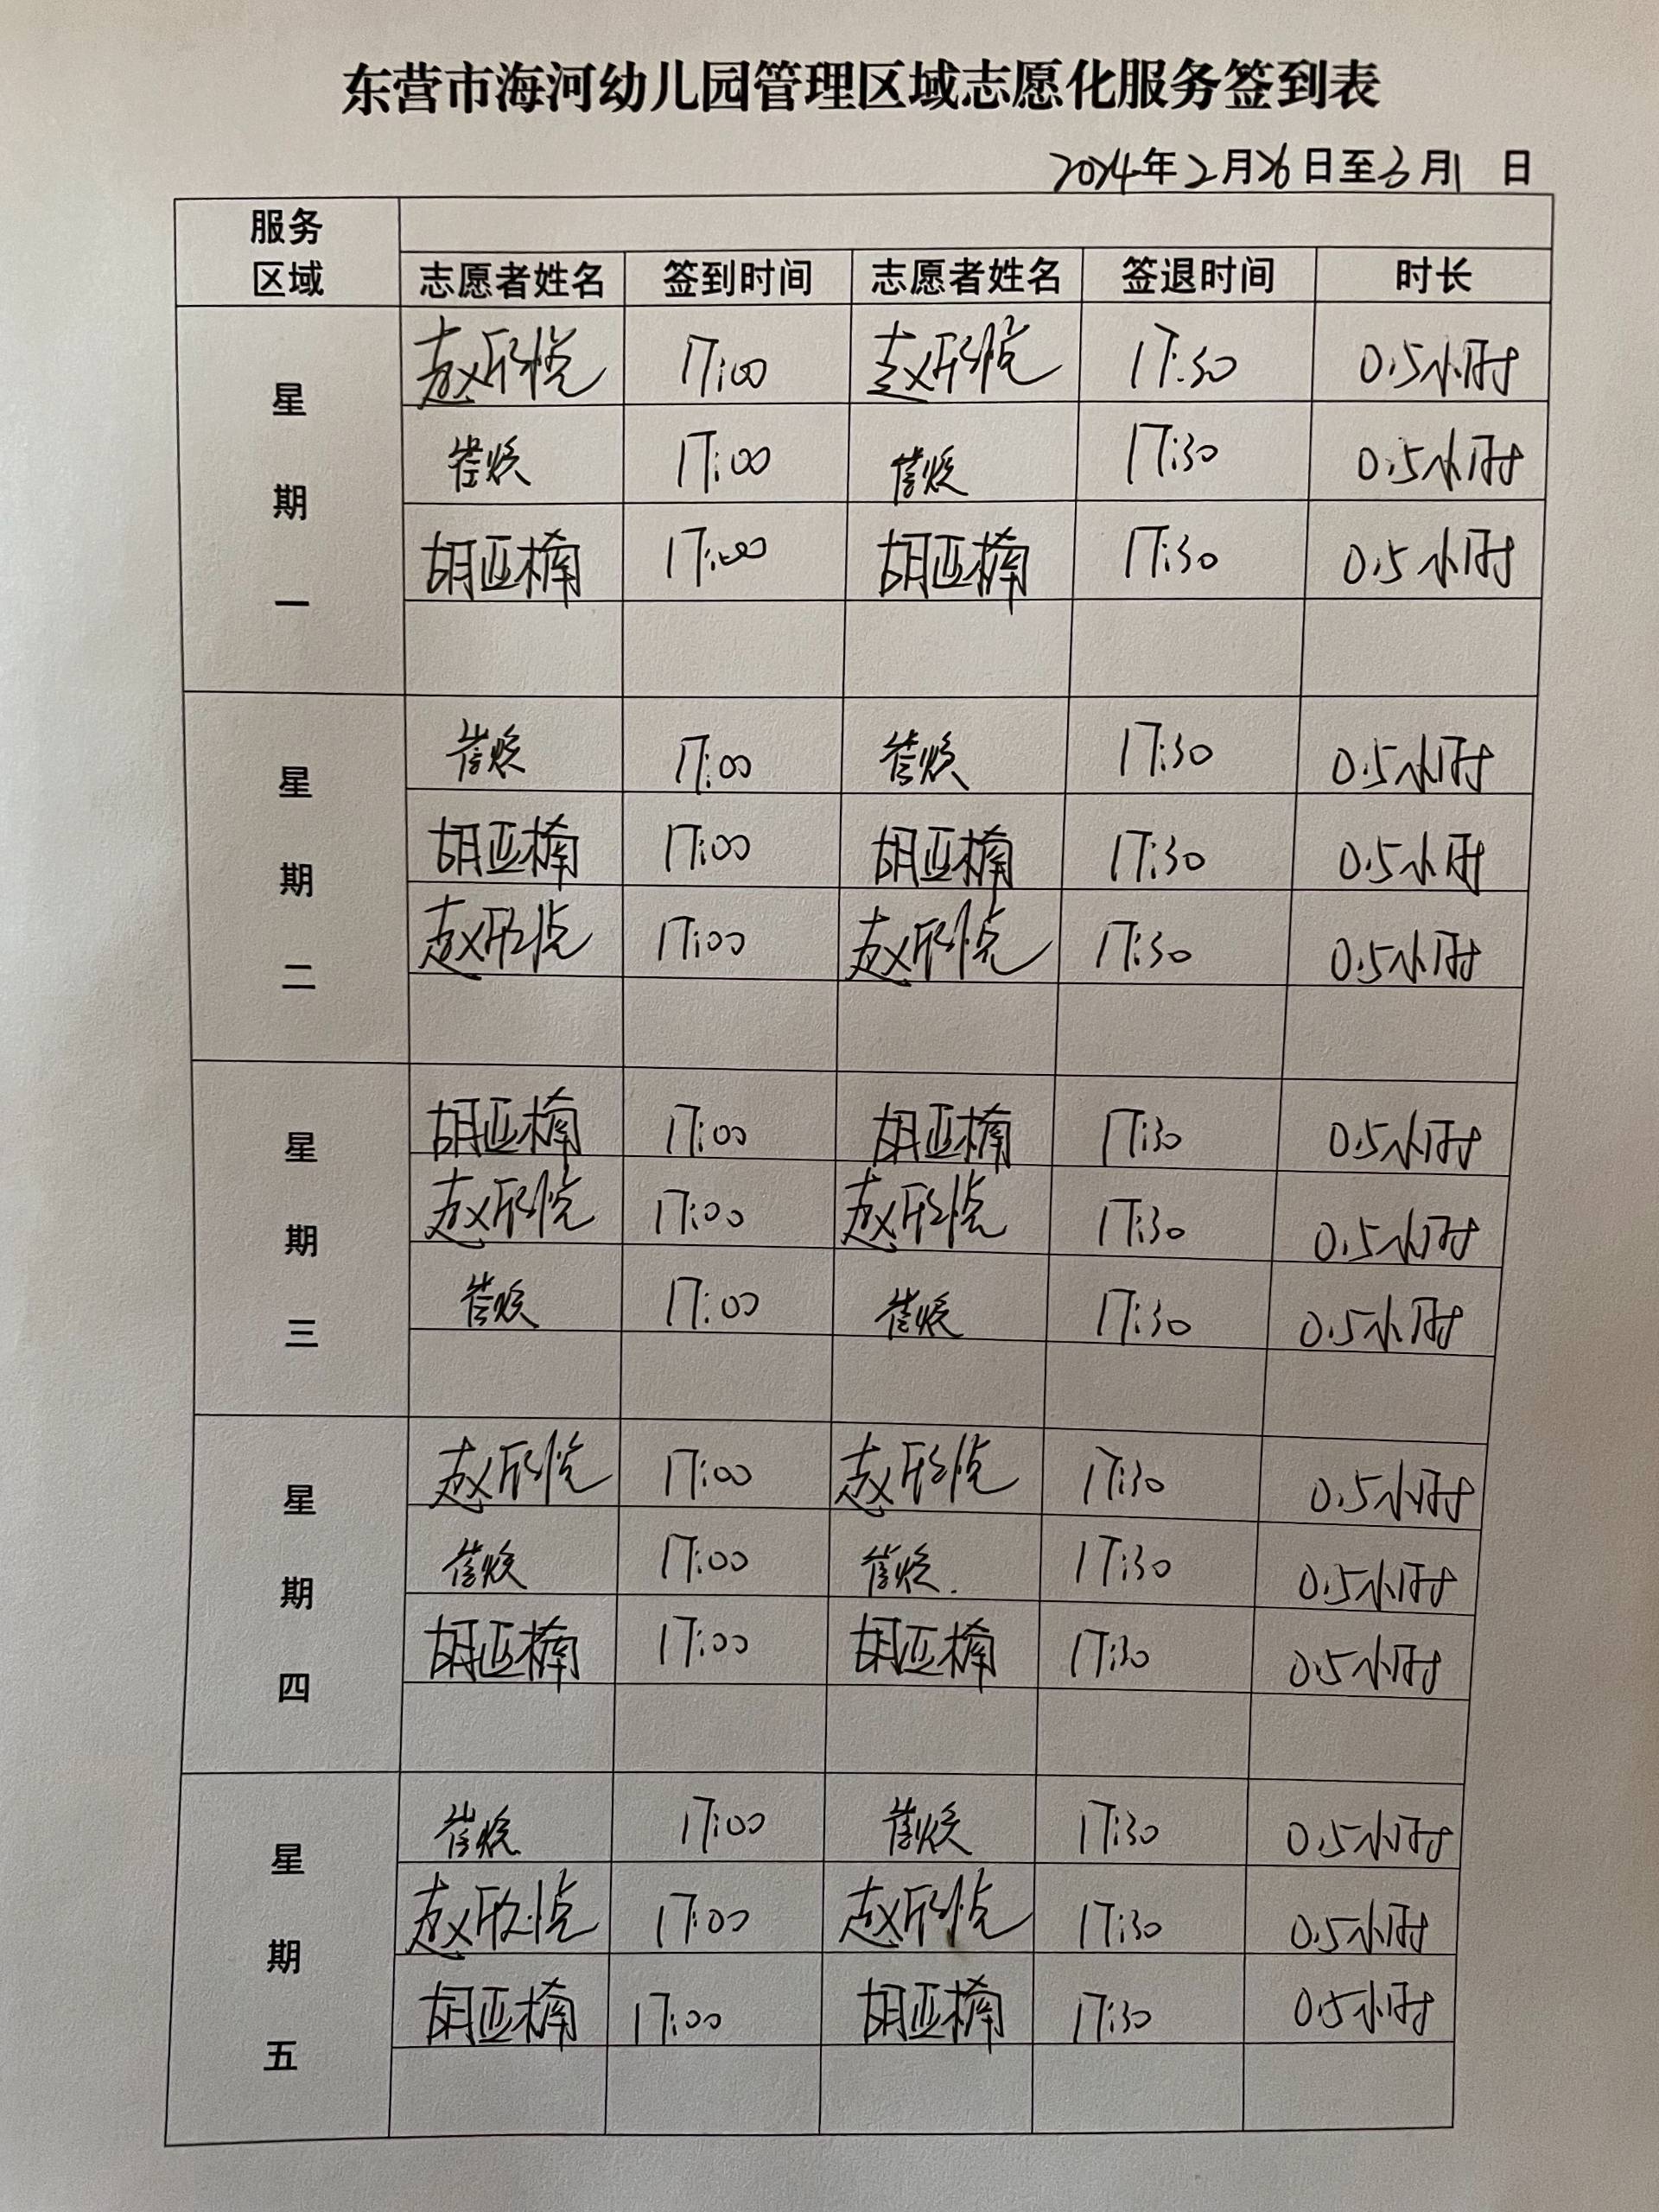 东营市海河幼儿园管理区域志愿化服务签到表
2024年2月26日至3月1日
服务区域
志愿者姓名 签到时间 志愿者姓名 签退时间 时长
星期一
赵欣悦 17:00 赵欣悦 17:30 0.5小时
崔焕 17:00 崔焕 17:30 0.5小时
胡亚楠 17:00 胡亚楠 17:30 0.5小时
星期二
崔焕 17:00 崔焕 17:30 0.5小时
胡亚楠 17:00 胡亚楠 17:30 0.5小时
赵欣悦 17:00 赵欣悦 17:30 0.5小时
星期三
胡亚楠 17:00 胡亚楠 17:30 0.5小时
赵欣悦 17:00 赵欣悦 17:30 0.5小时
崔焕 17:00 崔焕 17:30 0.5小时
星期四
赵欣悦 17:00 赵欣悦 17:30 0.5小时
崔焕 17:00 崔焕. 17:30 0.5小时
胡亚楠 17:00 胡亚楠 17:30 0.5小时
星期五
崔焕 17:00 崔焕 17:30 0.5小时
赵欣悦 17:00 赵欣悦 17:30 0.5小时
胡亚楠 17:00 胡亚楠 17:30 0.5小时